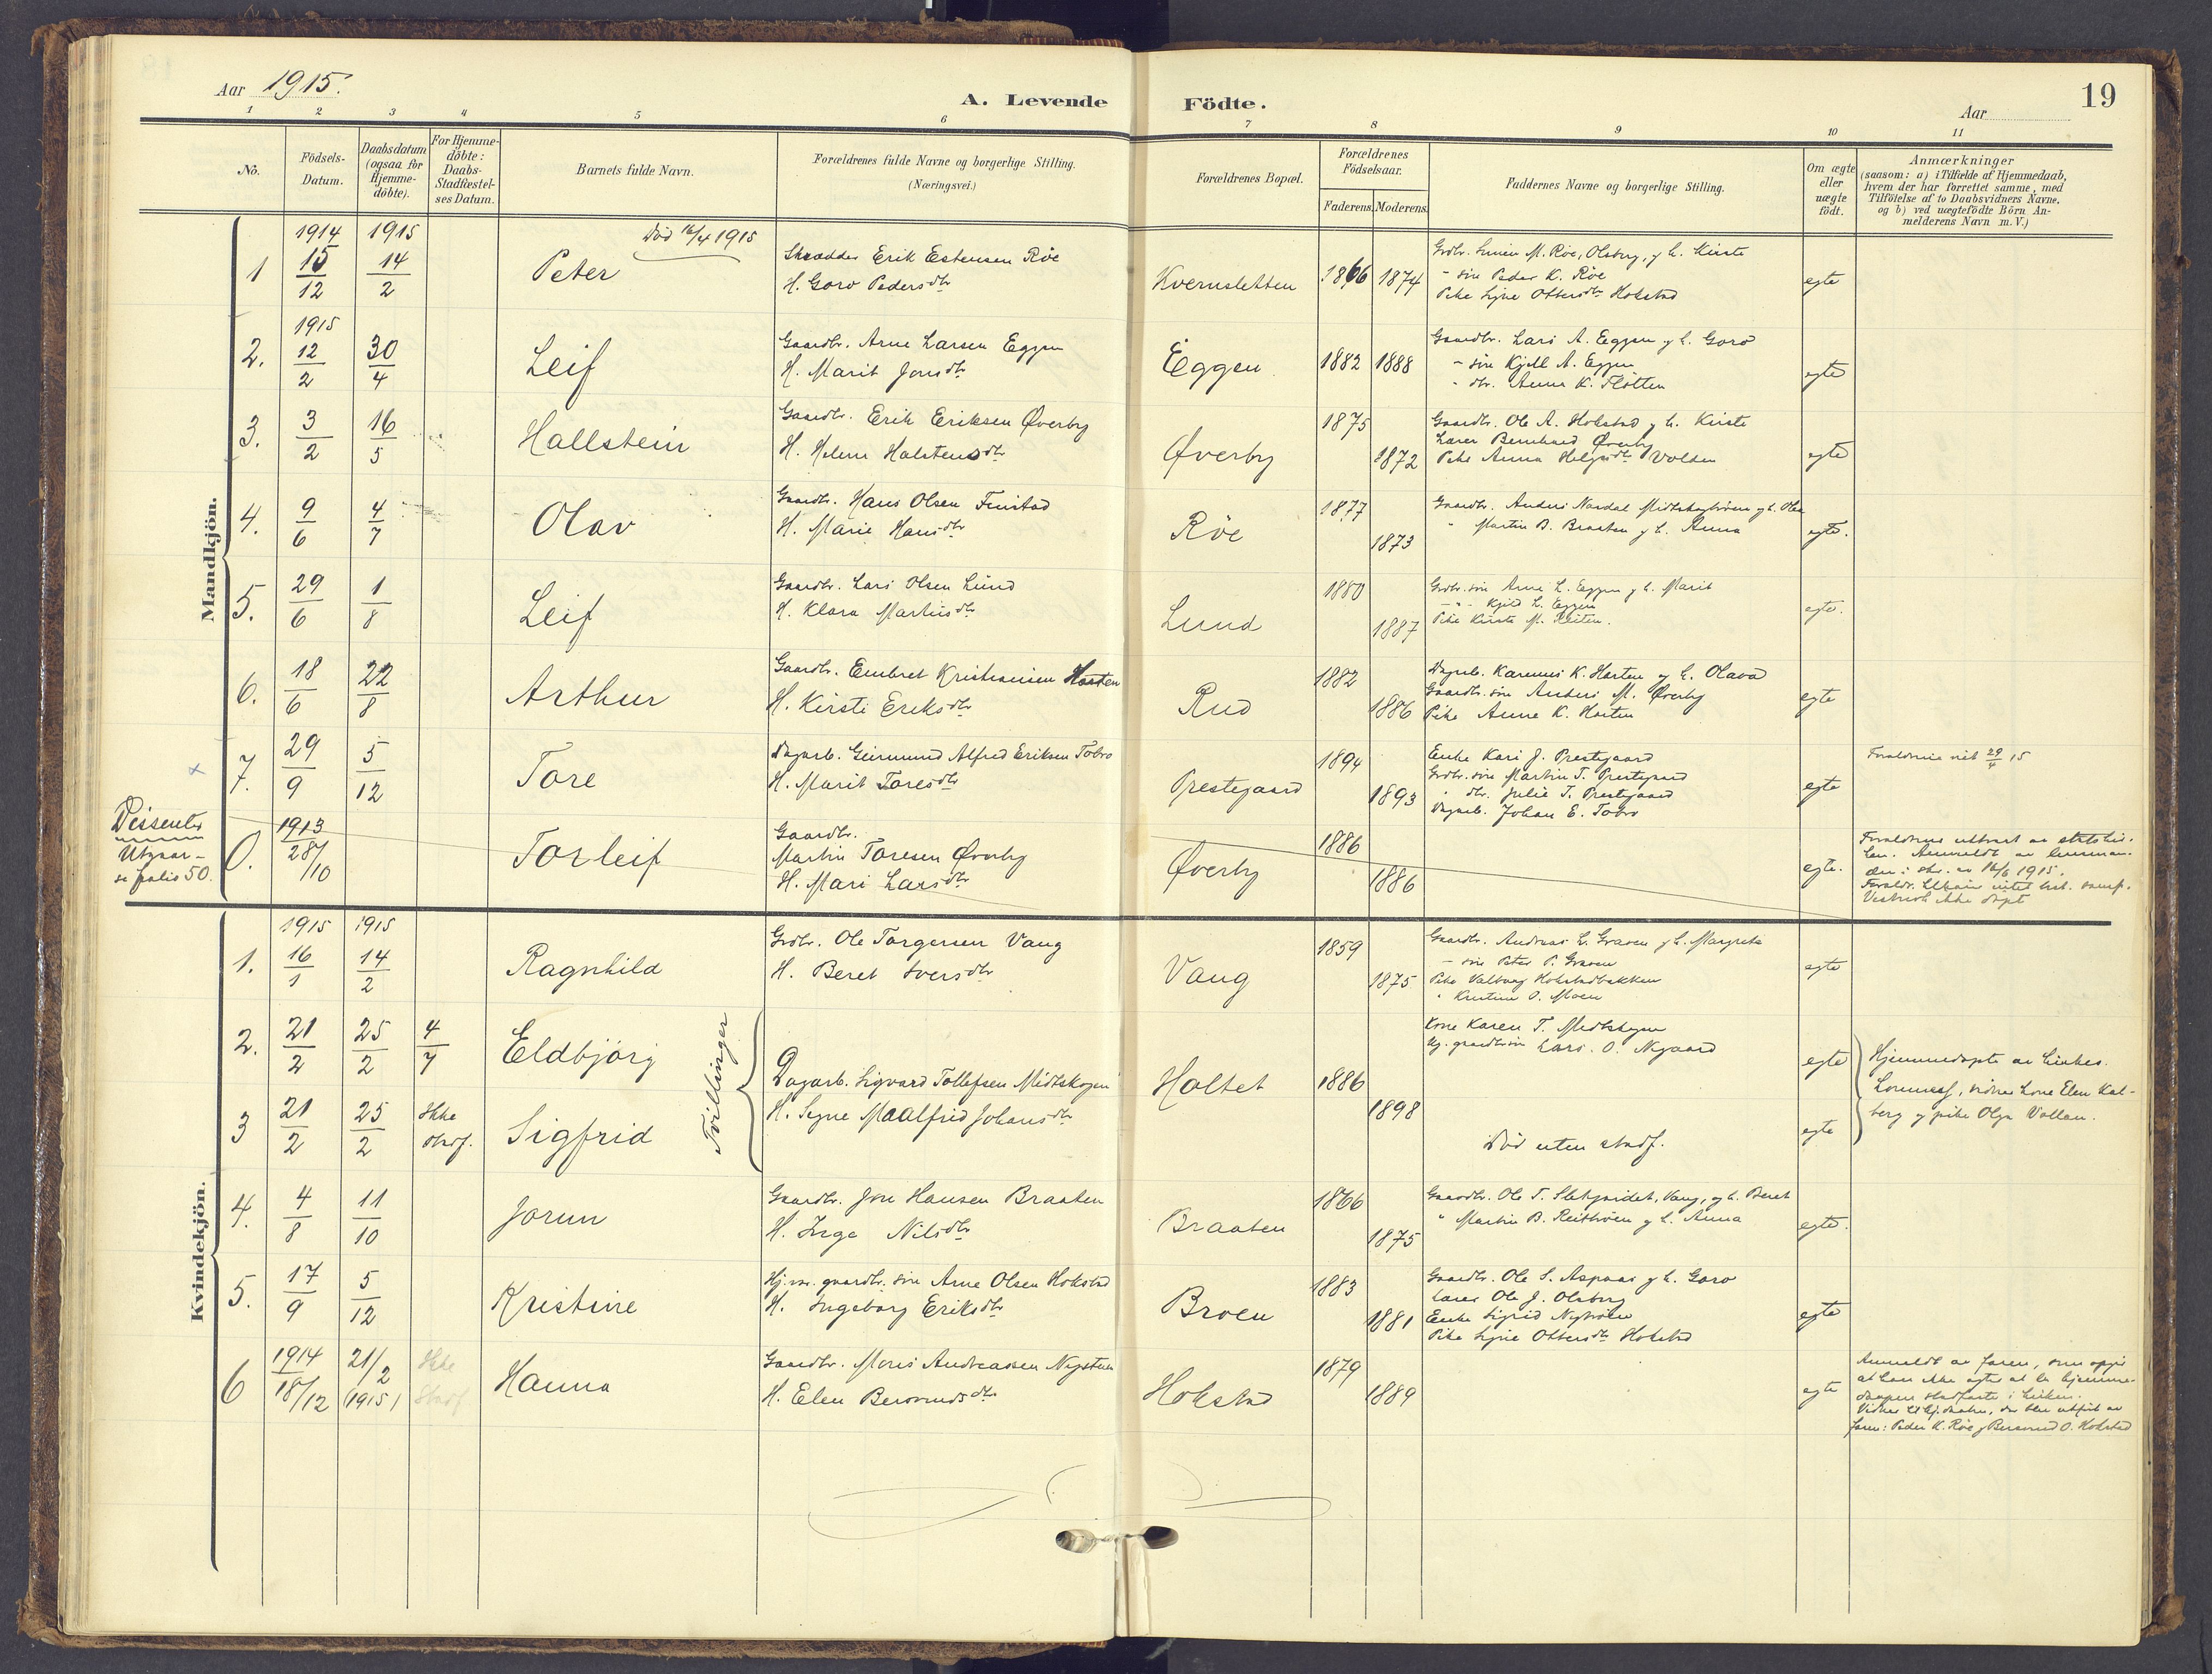 Aar 1915.
A. Levende Födte.
19
Aar
1 2 3 4 5 6 7 8 9 10 11
No.
Födsels-Datum.
Daabsdatum (ogsaa for Hjemme-döbte).
For Hjemme-döbte: Daabs-Stadfæstel-ses Datum.
Barnets fulde Navn.
Forældrenes fulde Navne og borgerlige Stilling.
(Næringsvei.)
Forældrenes Bopæl.
Forældrenes Födselsaar.
Faderens. Moderens.
Faddernes Navne og borgerlige Stilling.
Om ægte eller uægte födt.
Anmærkninger
(saasom: a) i Tilfælde af Hjemmedaab,
hvem der har forrettet samme, med
Tilföielse af to Daabsvidners Navne,
og b) ved uægtefödte Börn An-
melderens Navn m. V.)
Mandkjön.
1 1914 15/12 1915 14/2 Peter Død 16/4 1915
Skrædder Erik Estensen Røe
H. Goro Pedersdtr
Kvernsletten 1866 1874
Peter K. Røe
Pike Signe Ottersdtr Hokstad
egte
2. 1915 12/2 30/4 Leif
Gaardbr. Arne Larsen Eggen
H. Marit Jonsdtr
Eggen 1882 1888
Gaardbr. Lars A. Eggen og h. Goro
- søn Kjell A. Eggen
- dtr. Anna K. Fløtten
egte
3. 3/2 16/5 Hallstein
Gaardbr. Erik Eriksen Øverby
H. Helene Halstensdtr
Øverby 1875 1872
Gaardbr. Ole A. Hokstad og h. Kirste
Lærer Bernhard Øverby
Pike Anna Helgesdtr Volden
egte
4. 9/6 4/7 Olav
Gaardbr. Hans Olsen Finstad
H. Marie Hansdtr
Røe 1877 1873
" Martin B. Braaten og h. Anna
egte.
5. 29/6 1/8 Leif
Gaardbr. Lars Olsen Lund
H. Klara Martinsdtr
Lund 1880 1887
Grdbr. søn Arne L. Eggen og h. Marit
-"- Kjeld L. Eggen
Pike Kirste M. Reiten.
egte.
6. 18/6 22/8 Arthur
Gaardbr. Embret Kristiansen Harten
H. Kirsti Eriksdtr
Rud 1882 1886
Dagarb. Karenus K. Harten og h. Olava
Gaardbr. søn Anders M. Øverby
Pike Anne K. Harten
egte
7. 29/9 5/12 Tore
Dagarb. Geirmund Alfred Eriksen Tobro
H. Marit Toresdtr
Prestegaard 1894 1893
Enke Kari J. Prestegaard
Grdbr. søn Martin T. Prestegaard
" dtr. Julie T. Prestegaard
Dagarb. Johan E. Tobro
egte
Forældrene viet 29/4 15
Dissenter
Utgaar -
se folio 50.
0. 1913 28/10 Torleif
Gaardbr.
Martin Toresen Øverby
H. Mari Larsdtr
Øverby 1886 1886
egte.
Forældrene uttraadt av statskir-
ken. Anmeldt av lensman-
den i skr. av 16/6 1915.
Kvindekjön.
1. 1915 16/1 1915 14/2 Ragnhild
Grdbr. Ole Torgersen Vang
H. Beret Iversdtr
Vang 1859 1875
Gaardbr. Andreas L. Graven og h. Margrete
- søn Peter P. Graven
Pike Valborg Hokstadbakken
" Kristine O. Moen
egte
2. 21/2 25/2 4/7 Eldbjørg
Tvillinger
3 21/2 25/2 Ikke stadf. Sigfrid
Dagarb. Sigvard Tollefsen Midtskogen
H. Signe Maalfrid Johansdtr
Holtet 1886 1898
Kone Karen T. Midtskogen
Ug. gaardbrsøn Lars O. Nygaard
Død uten stadf.
egte
egte
Hjemmedøpte av
vidner kone Elen Kal-
berg og pike Olga Vollan.
4. 4/8 11/10 Jorun
Gaardbr. Jon Hansen Braaten
H. Inga Nilsdtr
Braaten 1866 1875
Gaardbr. Ole T. Sletgardet, Vang, og h. Beret
" Martin B. Reitrøen og h. Anna
egte.
5. 17/9 5/12 Kristine
Hj.vær. gaardbr. søn Arne Olsen Hokstad
H. Ingeborg Eriksdtr
Broen 1883 1881
Gaardbr. Ole S. Aspaas og h. Goro
Lærer Ole J. Olsberg
Enke Sigrid Nyrøen
Pike Signe Ottersdtr Hokstad
egte
6 1914 18/12 21/2 (1915) Ikke stadf. Hanna
Gaardbr. Moris Andreassen Nystuen
H. Elen Bersvendsdtr
Hokstad 1879 1889
egte
Anmeldt av faren, som opgir
at han ikke agter at la hjemme-
daapen stadfæste i kirken.
Vidner til hj.daaben, der blev utført av
faren: Peder K. Røe og Bersvend O. Hokstad